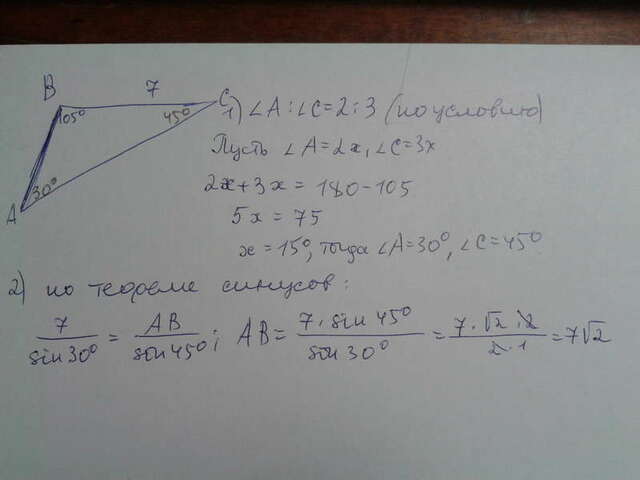 B 7 C
105° 45°
A 30°
1) ∠A:∠C=2:3 (по условию)
Пусть ∠A=2x, ∠C=3x
2x+3x=180-105
5x=75
x=15°, тогда ∠A=30°, ∠C=45°
2) по теореме синусов:
7/sin30° = AB/sin45°; AB = 7·sin45°/sin30° = 7·√2·2/2·1 = 7√2